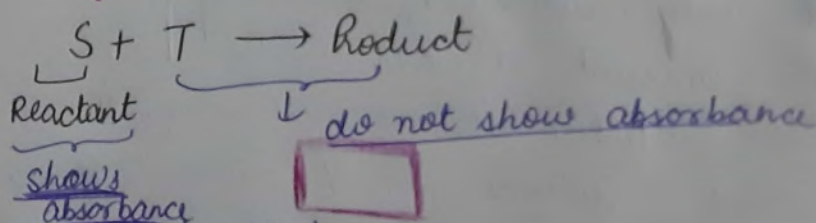 S + T ⟶ Product
Reactant
↓ do not show absorbance
shows
absorbance